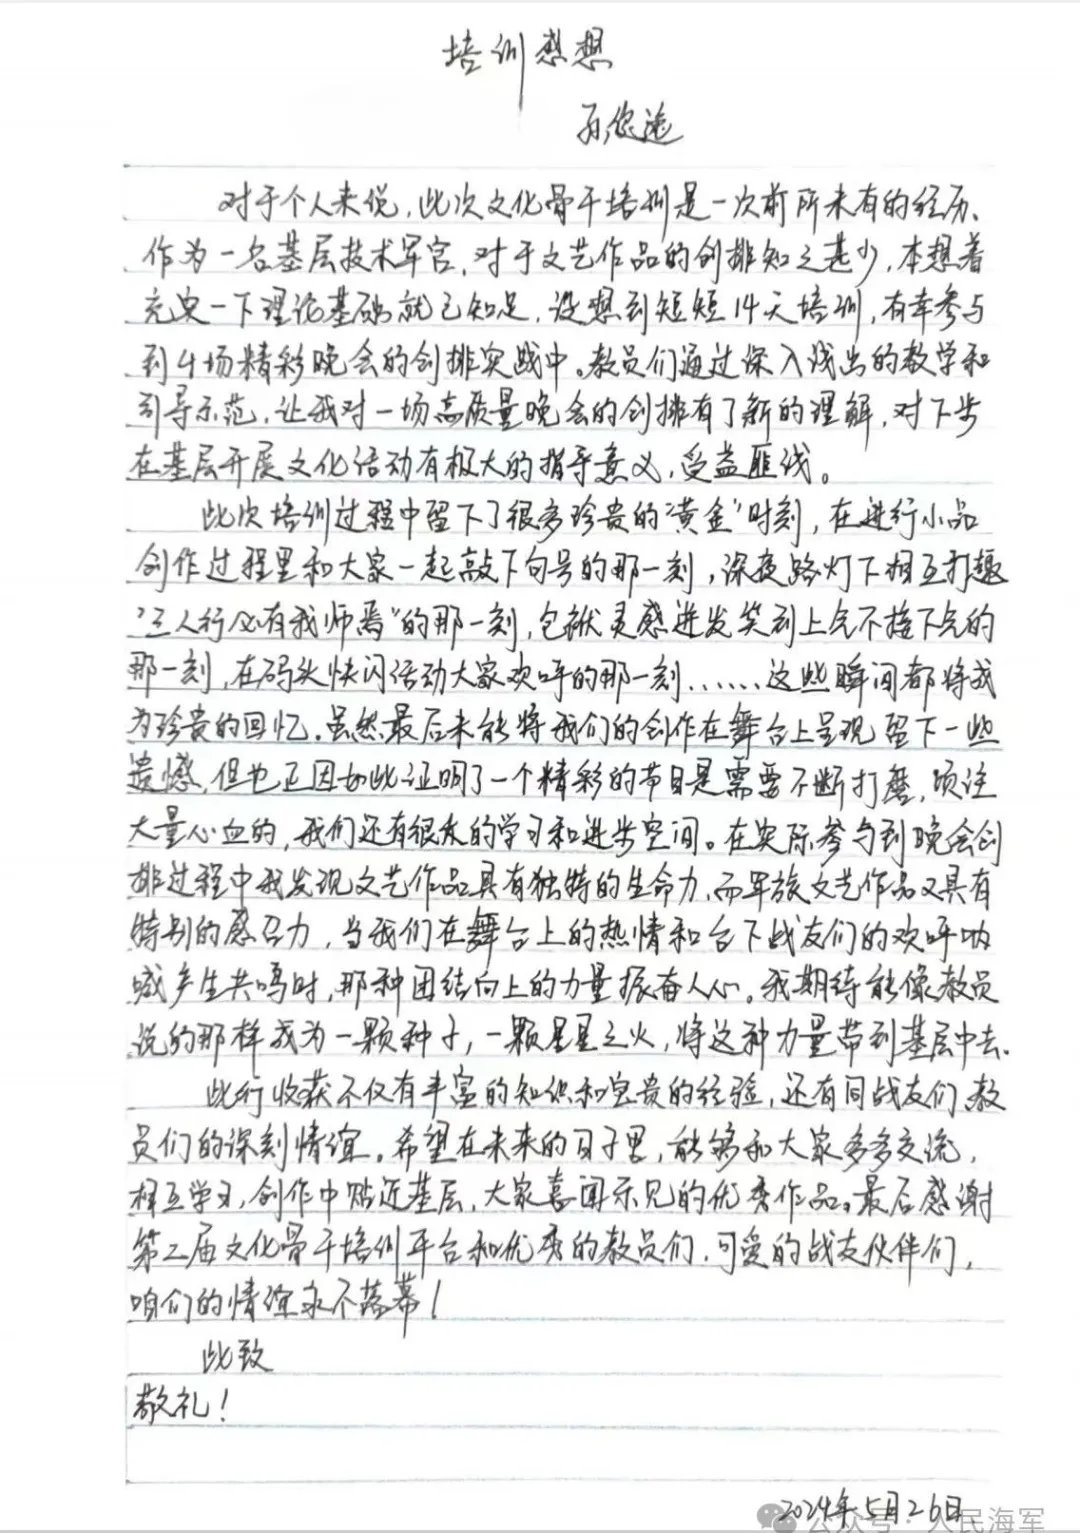 培训感想
孙
对于个人来说,此次文化骨干培训是一次前所未有的经历、
作为一名基层技术军官,对于文艺作品的创排知之甚少,本想着
充实一下理论基础就已知足,没想到短短14天培训,有幸参与
到4场精彩晚会的创排实战中。教员们通过深入浅出的教学和
引导示范,让我对一场高质量晚会的创排有了新的理解,对下步
在基层开展文化活动有极大的指导意义,受益匪浅。
此次培训过程中留下了很多珍贵的"黄金"时刻,在进行小品
创作过程里和大家一起敲下句号的那一刻,深夜路灯下相互打趣
"三人行必有我师焉"的那一刻,包袱灵感迸发笑到上气不接下气的
那一刻,在码头快闪活动大家欢呼的那一刻……这些瞬间都将成
为珍贵的回忆。虽然最后未能将我们的创作在舞台上呈现留下一些
遗憾,但也正因如此证明了一个精彩的节目是需要不断打磨,倾注
大量心血的,我们还有很大的学习和进步空间。在实际参与到晚会创
排过程中我发现文艺作品具有独特的生命力,而军旅文艺作品又具有
特别的感召力,当我们在舞台上的热情和台下战友们的欢呼呐
喊产生共鸣时,那种团结向上的力量振奋人心。我期待能像教员
说的那样成为一颗种子,一颗星星之火,将这种力量带到基层中去.
此行收获不仅有丰富的知识和宝贵的经验,还有同战友们、教
员们的深刻情谊。希望在未来的日子里,能够和大家多多交流,
相互学习,创作中贴近基层,大家喜闻乐见的优秀作品。最后感谢
第二届文化骨干培训平台和优秀的教员们,可爱的战友伙伴们,
咱们的情谊永不落幕!
此致
敬礼!
2024年5月26日
公众号·人民海军